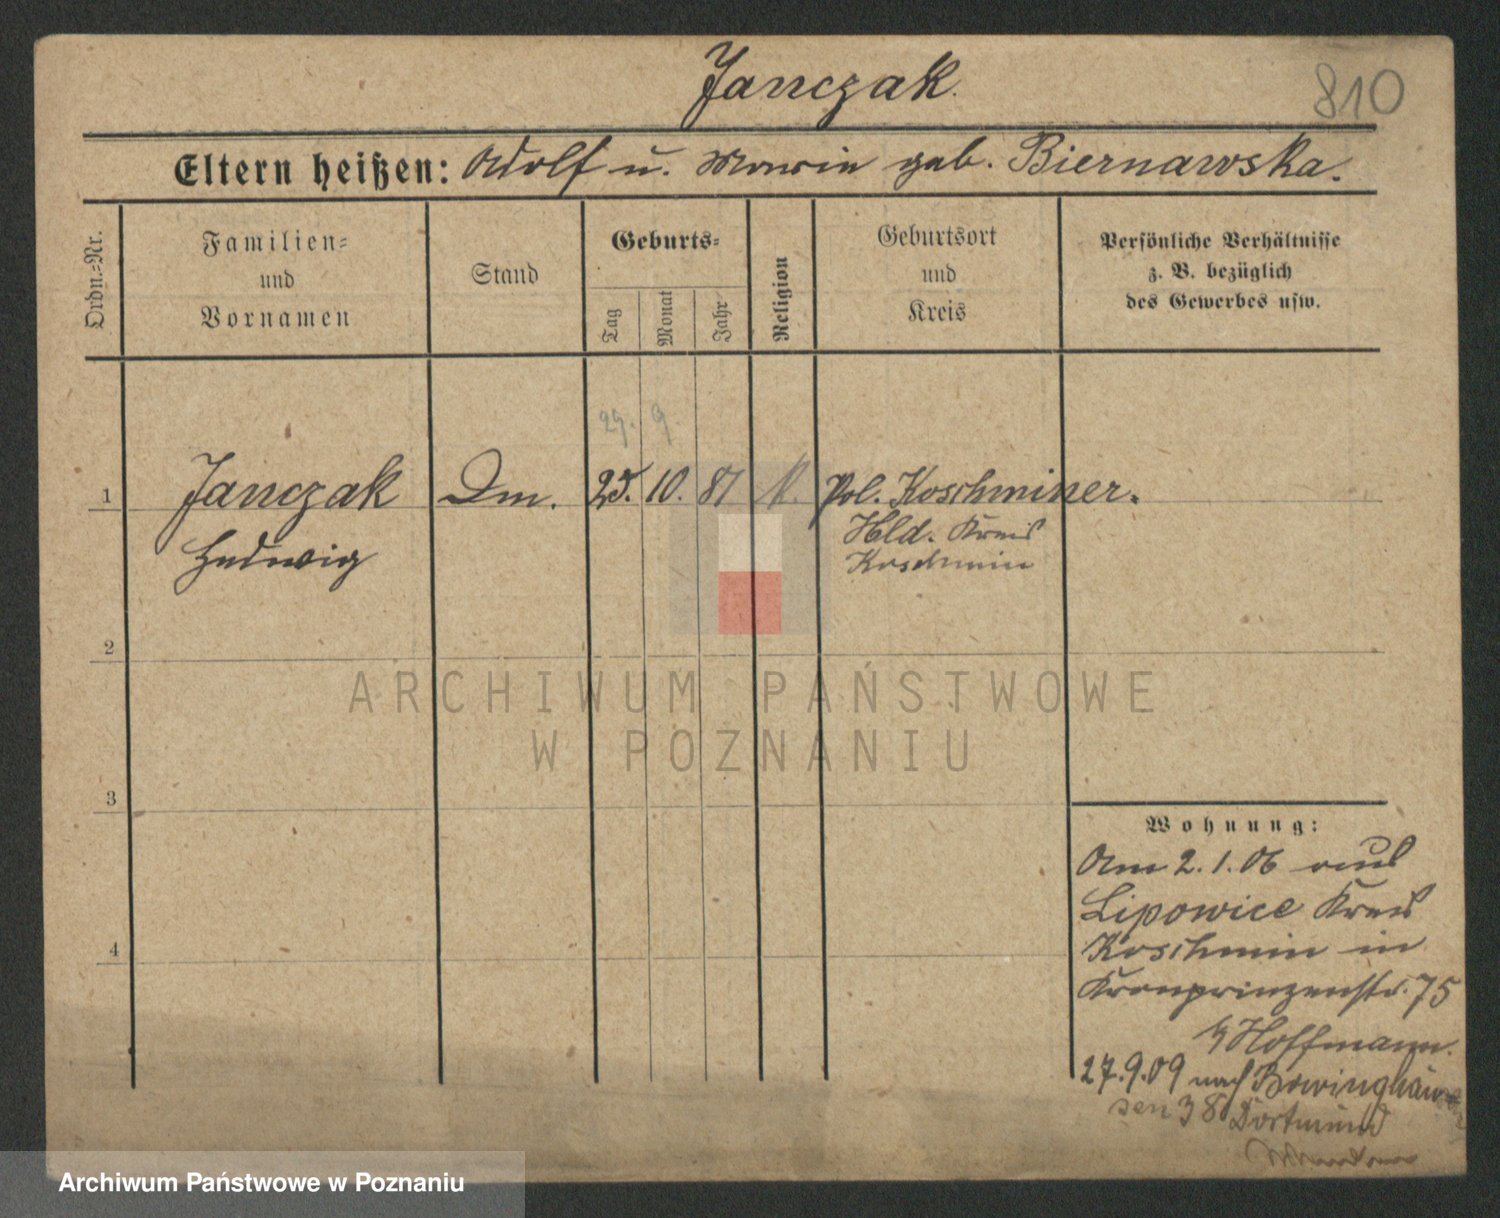 Janczak.
810
Eltern heißen: Adolf u. Marie geb. Biernawska.
Ordn.-Nr.
Familien-
und
Vornamen
Stand
Geburts-
Tag
Monat
Jahr
Religion
Geburtsort
und
Kreis
Persönliche Verhältnisse
z. B. bezüglich
des Gewerbes usw.
29. 9.
1 Janczak 25. 10. 81 Pol. Koschminer-
Hedwig
Hld. Kreis
Koschmin
2
ARCHIWUM PAŃSTWOWE
W POZNANIU
3
4
Wohnung:
Am 2.1.06 aus
Lipowice Kreis
Koschmin in
Kronprinzenstr. 75
b/ Hoffmann.
27.9.09 nach
sen 38 Dortmund
Archiwum Państwowe w Poznaniu